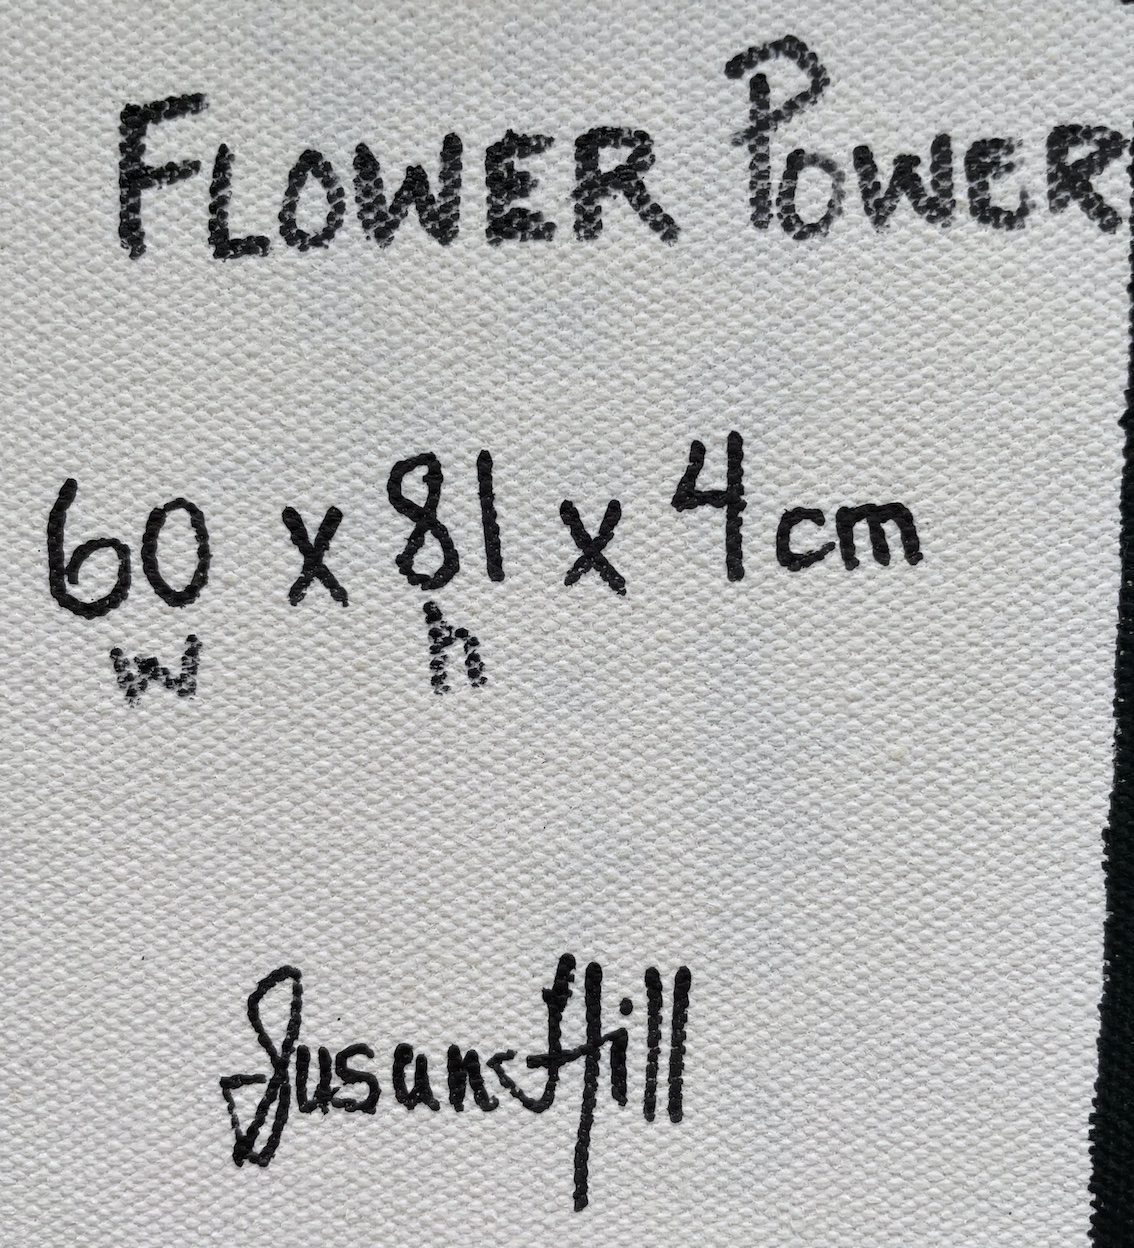 FLOWER POWER
60 x 81 x 4cm
w h
Susan Hill